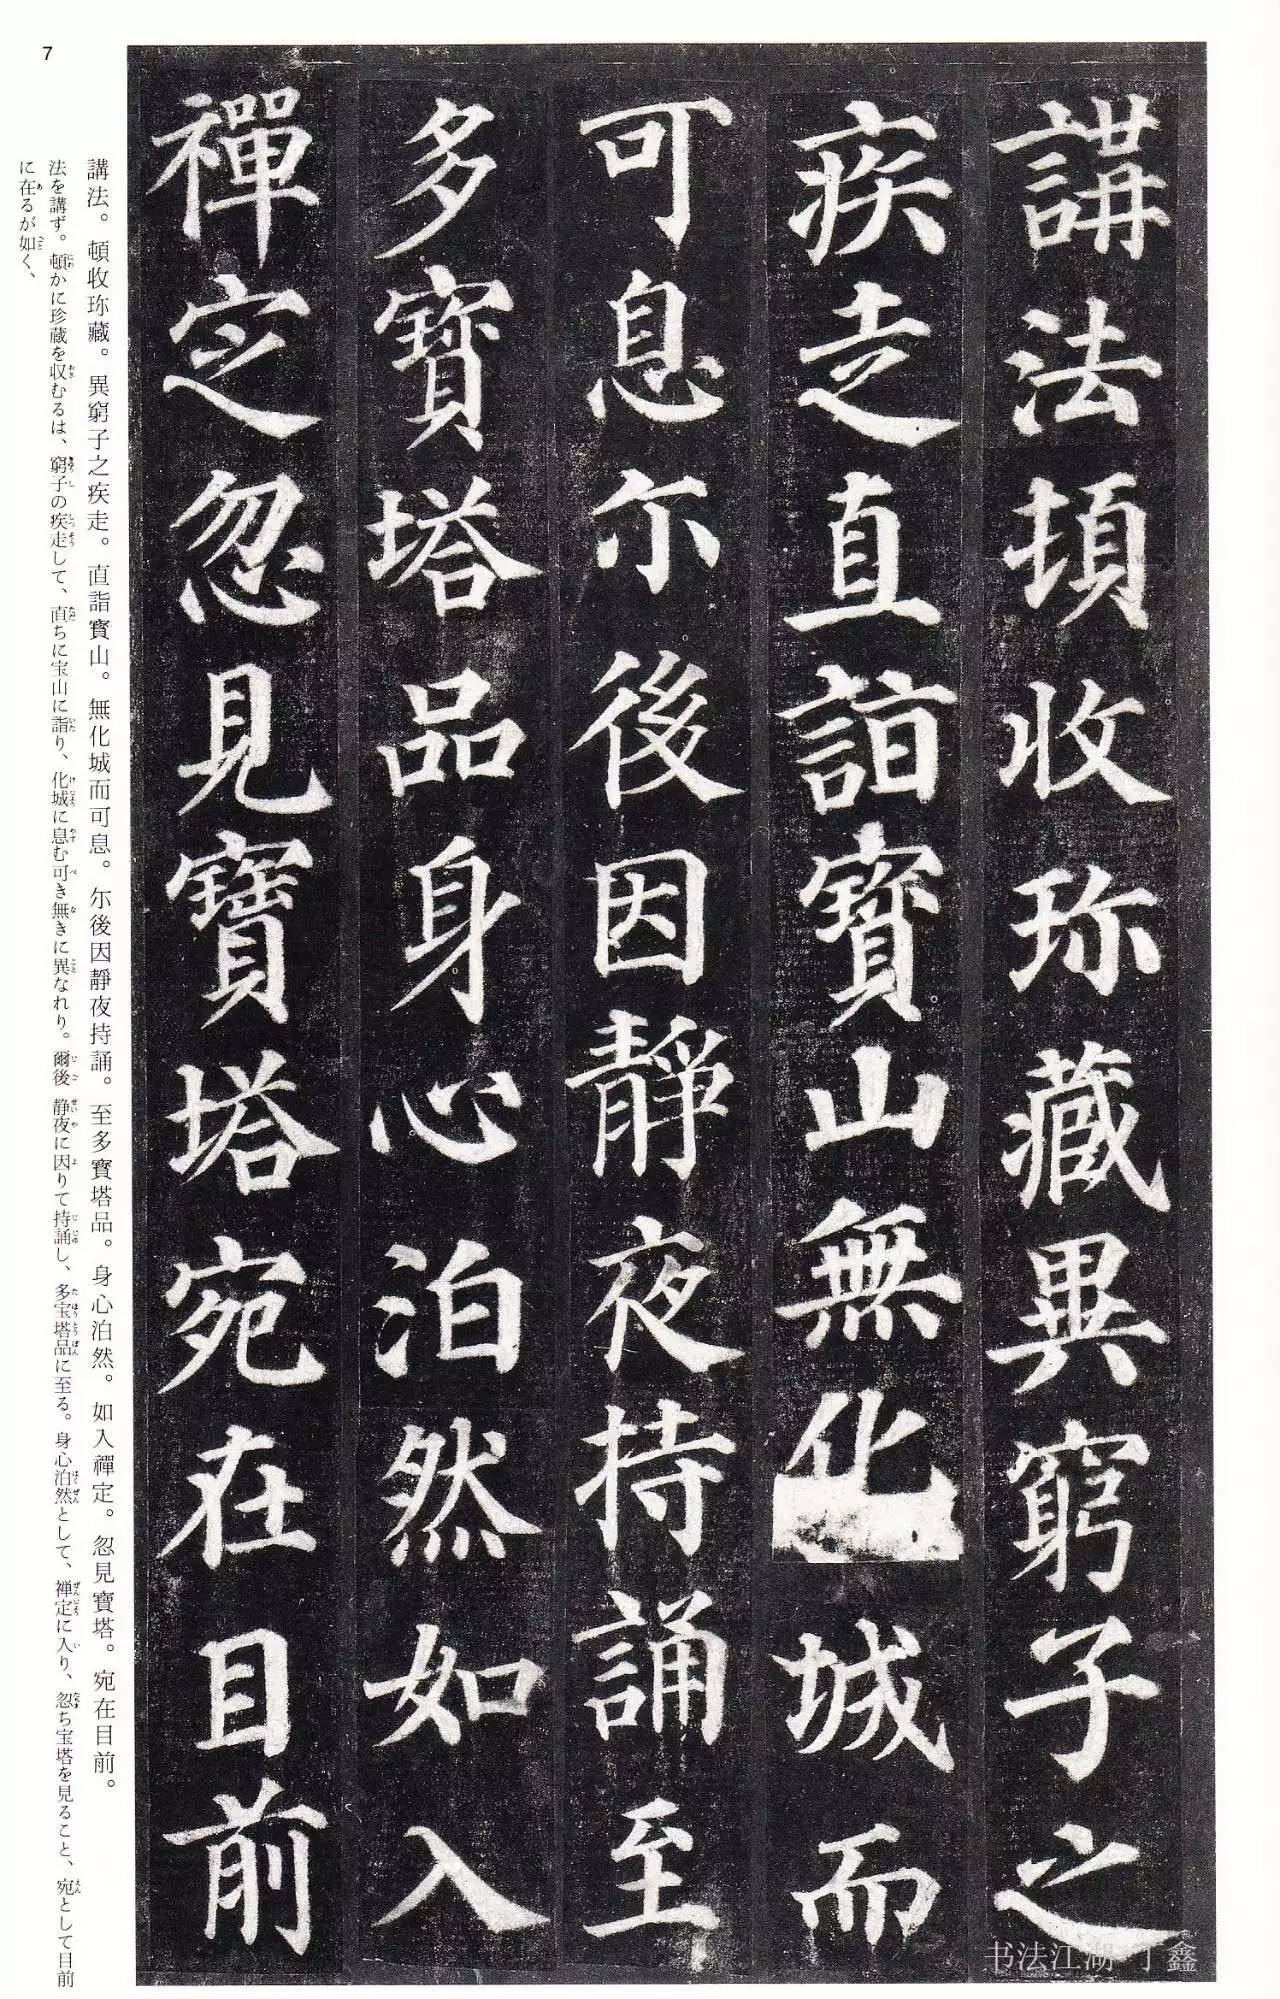 講法頓收珎藏異窮子之
疾走直詣寳山無化城而
可息尓後因靜夜持誦至
多寳塔品身心泊然如入
禪定忽見寳塔宛在目前
講法。頓收珎藏。異窮子之疾走。直詣寳山。無化城而可息。尓後因靜夜持誦。至多寳塔品。身心泊然。如入禪定。忽見寳塔。宛在目前。
法を講ず。頓かに珍蔵を収むるは、窮子の疾走して、直ちに宝山に詣り、化城に息む可き無きに異なれり。爾後静夜に因りて持誦し、多宝塔品に至る。身心泊然として、禅定に入り、忽ち宝塔を見ること、宛として目前
に在るが如く、
7
书法江湖 丁鑫